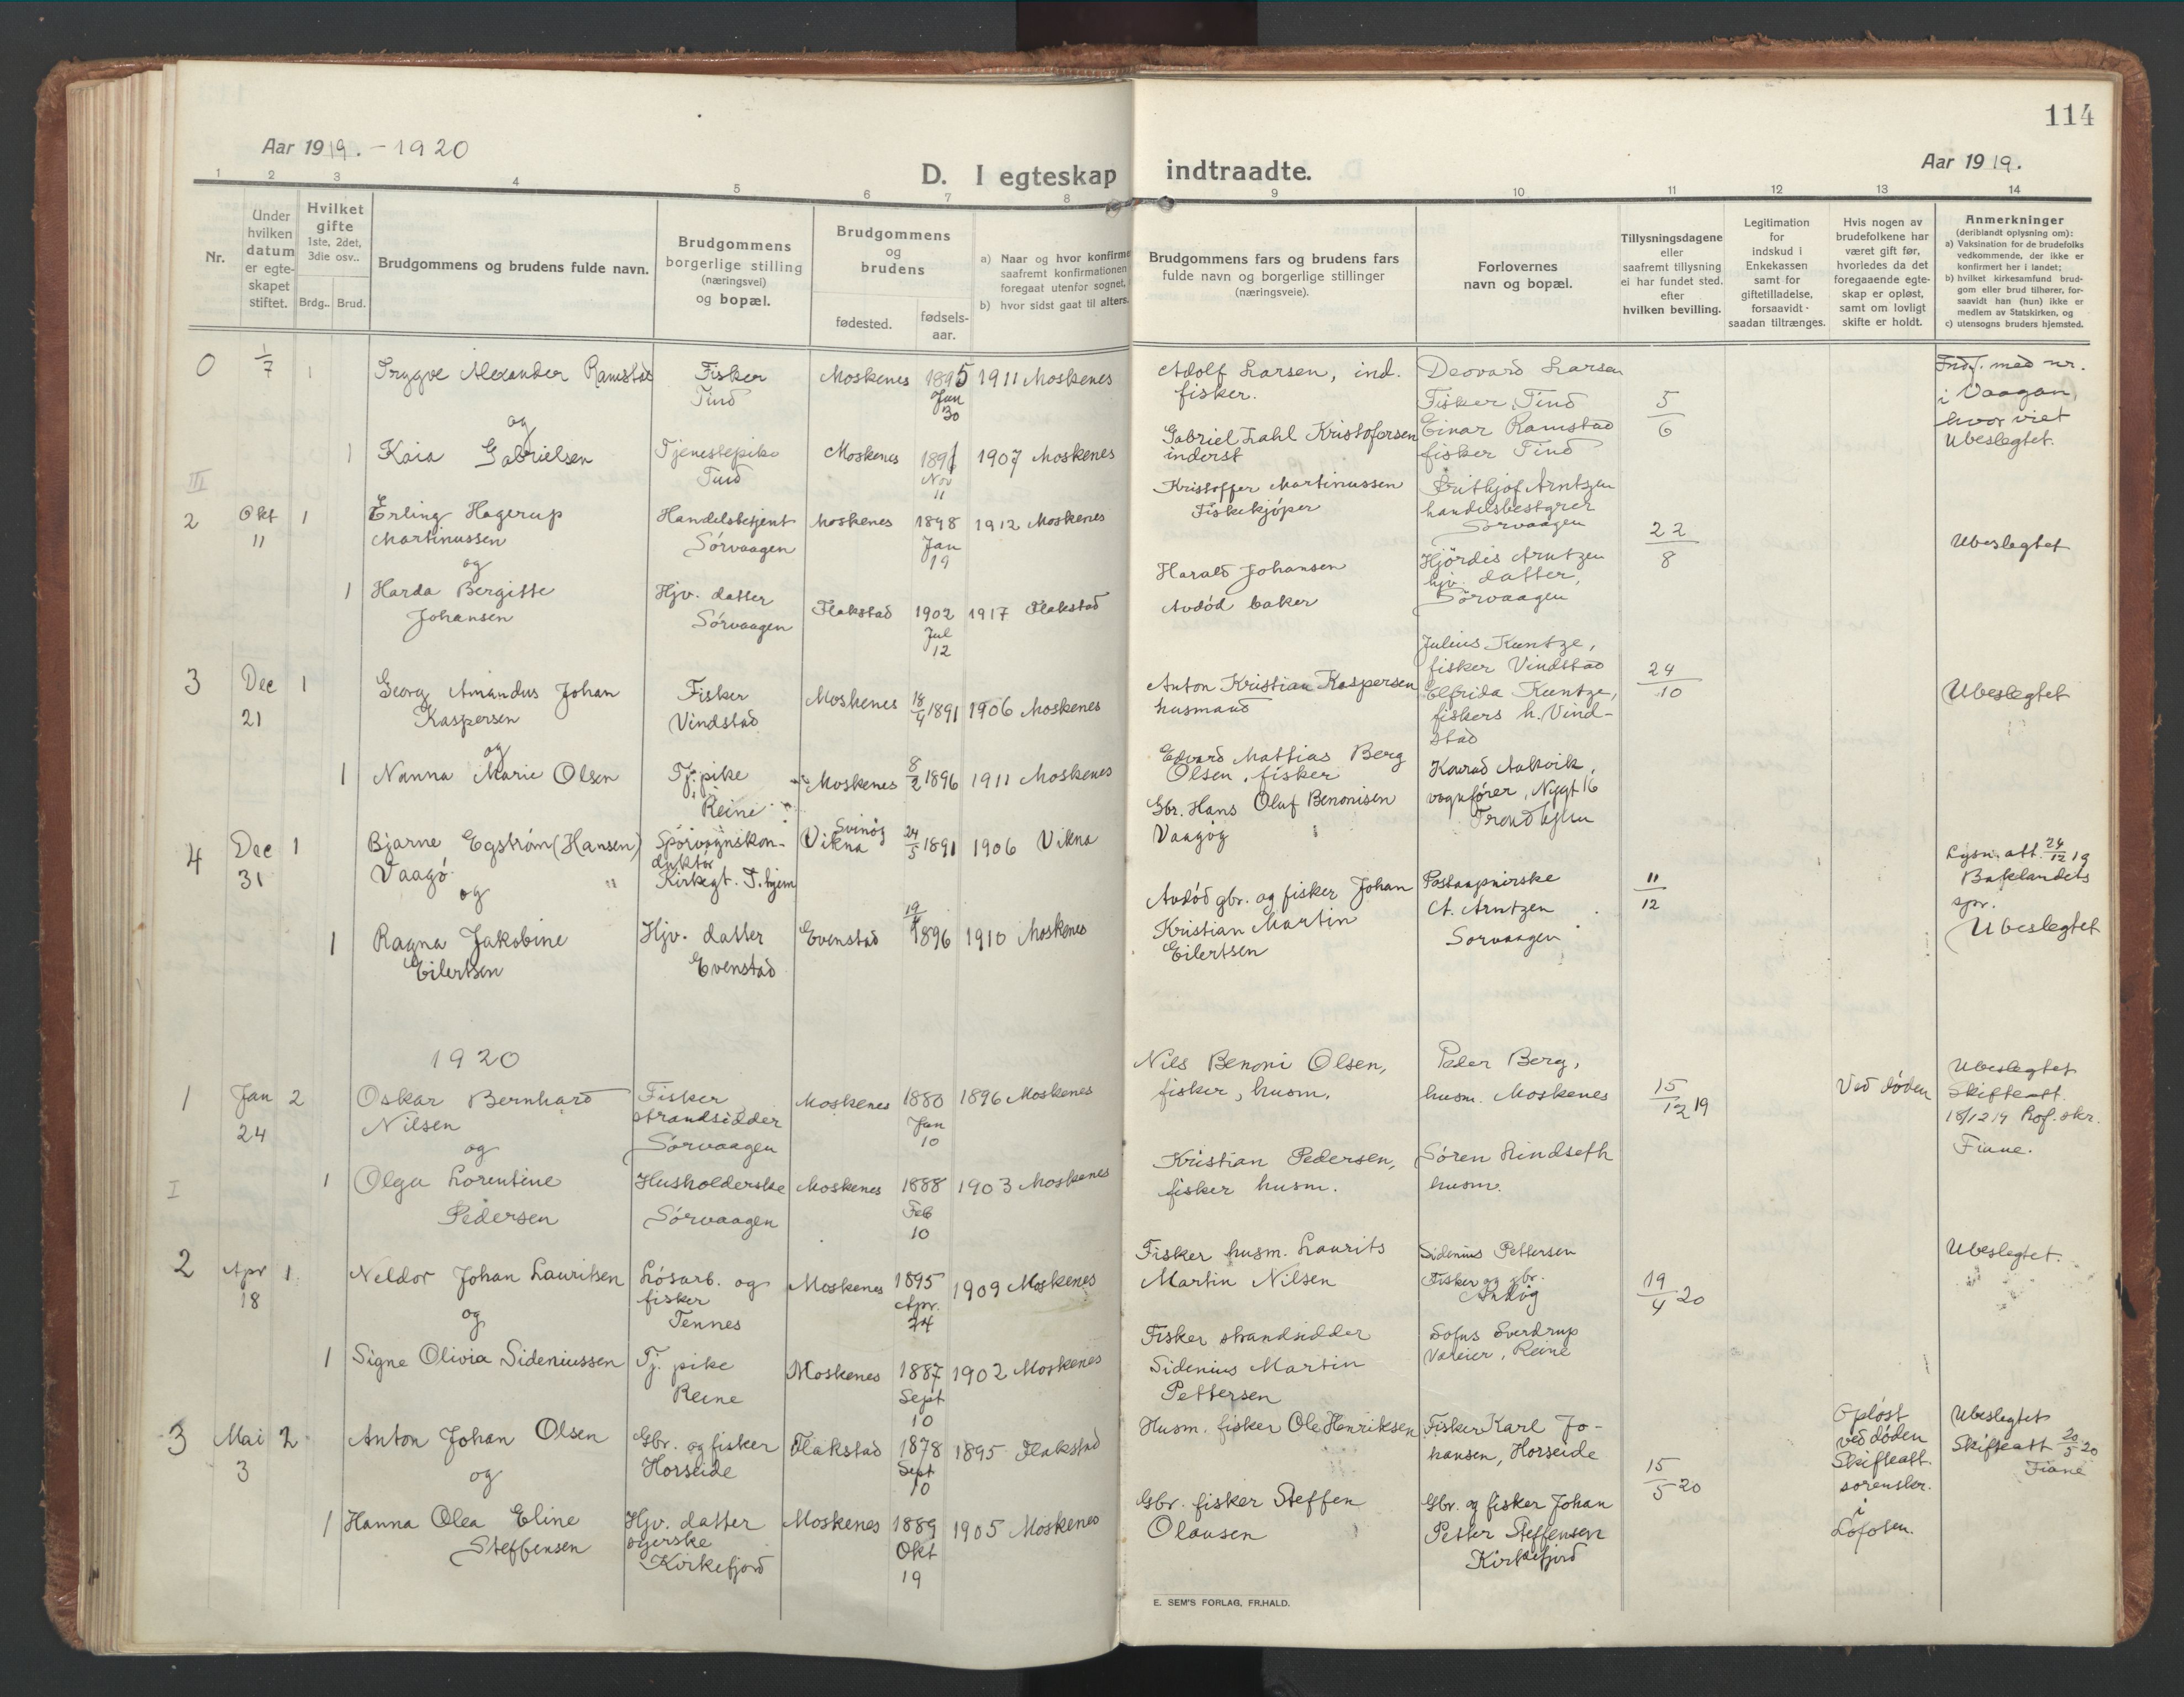 114
Aar 1919. - 1920
D. I egteskap indtraadte.
Aar 1919.
1 2 3 4 5 6 7 8 9 10 11 12 13 14
Nr.
Under hvilken datum er egte-skapet stiftet.
Hvilket gifte 1ste, 2det, 3die osv..
Brdg.. Brud.
Brudgommens og brudens fulde navn.
Brudgommens borgerlige stilling (næringsvei) og bopæl.
Brudgommens og brudens
fødested.
fødsels-aar.
a) Naar og hvor konfirme
saafremt konfirmationen
foregaat utenfor sognet,
b) hvor sidst gaat til alters.
Brudgommens fars og brudens fars
fulde navn og borgerlige stillinger
(næringsveie).
Forlovernes
navn og bopæl.
Tillysningsdagene
eller
saafremt tillysning
ei har fundet sted,
efter
hvilken bevilling.
Legitimation
for
indskud i
Enkekassen
samt for
giftetilladelse,
forsaavidt
saadan tiltrænges.
Hvis nogen av
brudefolkene har
været gift før,
hvorledes da det
foregaaende egte-
skap er opløst,
samt om lovligt
skifte er holdt.
Anmerkninger
(deriblandt oplysning om):
a) Vaksination for de brudefolks
vedkommende, der ikke er
konfirmert her i landet;
b) hvilket kirkesamfund brud-
gom eller brud tilhører, for-
saavidt han (hun) ikke er
medlem av Statskirken, og
c) utensogns bruders hjemsted.
0 1/7 1 Trygve Alexander Ramstad
Fisker
Tind
Moskenes 1895 Jan 30 1911 Moskenes
Adolf Larsen, ind.
fisker.
Deovard Larsen
Fisker, Tind
5/6
Indf. med nr.
i Vaagan,
hvor viet
Ubeslegtet.
og
1 Kaia Gabrielsen
Tjenestepike
Tind
Moskenes 1891 Nov 11 1907 Moskenes
Gabriel Dahl Kristofersen
inderst
Einar Ramstad
fisker Tind
III
2 Okt 11 1 Erling Hagerup
Martinussen
Handelsbetjent
Sørvaagen
Moskenes 1898 Jan 19 1912 Moskenes
Kristoffer Martinussen
Fiskekjøper
Frithjof Arntzen
handelsbestyrer
Sørvaagen
22/8
Ubeslegtet
og
1 Harda Bergitte
Johansen
Hjv. datter
Sørvaagen
Flakstad 1902 Jul 12 1917 Flakstad
Harald Johansen
Avdød baker
Hjördis Arntzen
hjv. datter,
Sørvaagen
3 Dec 21 1 Georg Amandus Johan
Kaspersen
Fisker
Vindstad
Moskenes 18/9 1891 1906 Moskenes
Anton Kristian Kaspersen
husmand
Julius Kuntze,
fisker Vindstad
Elfrida Kuntze,
fiskers h. Vind-
stad
24/10
Ubeslegtet
og
1 Nanna Marie Olsen
Tj. pike
Reine
Moskenes 8/2 1896 1911 Moskenes
Edvard Mathias Berg
Olsen, fisker
4 Dec 31 1 Bjarne Egstrøm (Hansen)
Vaagø
Sporvognskon-
duktør
Kirkegt. T.hjem
Svinøy
Vikna 24/5 1891 1906 Vikna
Gbr. Hans Oluf Benonisen
Vaagøy
Konrad Aakvik,
vognfører, Nygt 16
Trondhjem
11/12
Lysn. att. 24/12 19
Baklandets
spr.
Ubeslegtet
og
1 Ragna Jakobine
Eilertsen
Hjv. datter
Evenstad
Evenstad 19/9 1896 1910 Moskenes
Avdød gbr. og fisker Johan
Kristian Martin
Eilertsen
Postaapnerske
A. Arntzen
Sørvaagen
1920
1 Jan 24 2 Oskar Bernhard
Nilsen
Fisker
strandsidder
Sørvaagen
Moskenes 1880 Jan 10 1896 Moskenes
Nils Benoni Olsen,
fisker, husm.
Peder Berg,
husm. Moskenes
15/12 19
Ved døden
Ubeslegtet
Skifteatt.
18/12 19 Lof. skr.
Fiane.
og
I
1 Olga Lorentine
Pedersen
Husholderske
Sørvaagen
Moskenes 1888 Feb 10 1903 Moskenes
Kristian Pedersen,
fisker husm.
Søren Lindseth
husm.
2 Apr 18 1 Neldor Johan Lauritsen
Løsarb. og
fisker
Tennes
Moskenes 1895 Apr. 24 1909 Moskenes
Fisker husm. Laurits
Martin Nilsen
Sidenius Pettersen
Fisker og gbr.
19/4 20
Ubeslegtet.
og
1 Signe Olivia Sideniussen
Tj. pike
Reine
Moskenes 1887 Sept 10 1902 Moskenes
Fisker strandsidder
Sidenius Martin
Pettersen
Sofus Sverdrup
Væreier, Reine
3 Mai 3 2 Anton Johan Olsen
Gbr. og fisker
Horseide
Flakstad 1878 Sept 10 1895 Flakstad
Husm. fisker Ole Henriksen
Fisker Karl Jo-
hansen, Horseide
15/5 20
Opløst
ved døden
Skifteatt.
sorenskr.
i
Lofoten.
Ubeslegtet
Skifteatt 20/5 20
Fiane
og
1 Hanna Olea Eline
Steffensen
Hjv. datter
syerske
Kirkefjord
Moskenes 1889 Okt 19 1905 Moskenes
Gbr. fisker Steffen
Olausen
Gbr. og fisker Johan
Petter Steffensen
Kirkefjord
E. SEM'S FORLAG, FR.HALD.